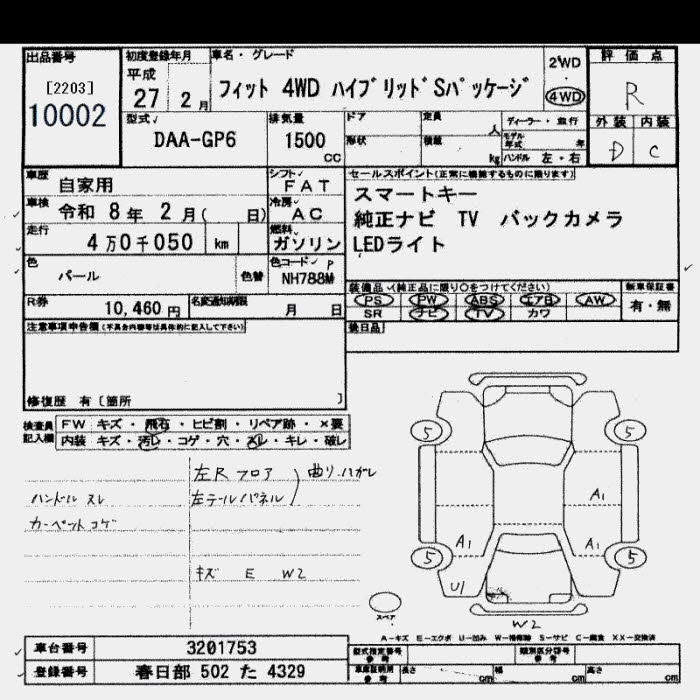 出品番号 初度登録年月 車名・グレード 評価点
[2203] 平成 2WD
10002 27 2月 フィット 4WD ハイブリッドSパッケージ 4WD R
型式 排気量 ドア 定員 人 ディーラー・並行 外装 内装
DAA-GP6 1500 CC 形状 積載 kg モデル年式 年 ハンドル 左・右 D C
車歴 自家用 シフト FAT セールスポイント(正常に機能するものに限ります)
車検 令和 8年 2月( 日) 冷房 AC スマートキー
走行 4万0千050 km 燃料 ガソリン 純正ナビ TV バックカメラ
LEDライト
色 パール 色替 色コード P NH788M
装備品 (純正品に限り○をつけてください) 新車保証書
PS PW ABS エアB AW 有・無
SR ナビ TV カワ
R券 10,460円 名変通知期限 月 日
後日品
注意事項申告欄(不具合内容等は具体的に記入して下さい)
修復歴 有〔箇所 〕
検査員記入欄 FW キズ・飛石・ヒビ割・リペア跡・×要
内装 キズ・汚レ・コゲ・穴・スレ・キレ・破レ
左Rフロア 曲り.ハガレ
ハンドル スレ 左テールパネル
カーペット コゲ
キズ E W2
5 5
A1
A1 A1
5 5
U1
スペア
W2
A-キズ E-エクボ U-凹み W-補修跡 S-サビ C-腐食 XX-交換済
車台番号 3201753 型式指定番号 参考 類別区分番号 参考
登録番号 春日部 502 た 4329 車庫証明用 参考 長さ cm 幅 cm 高さ cm